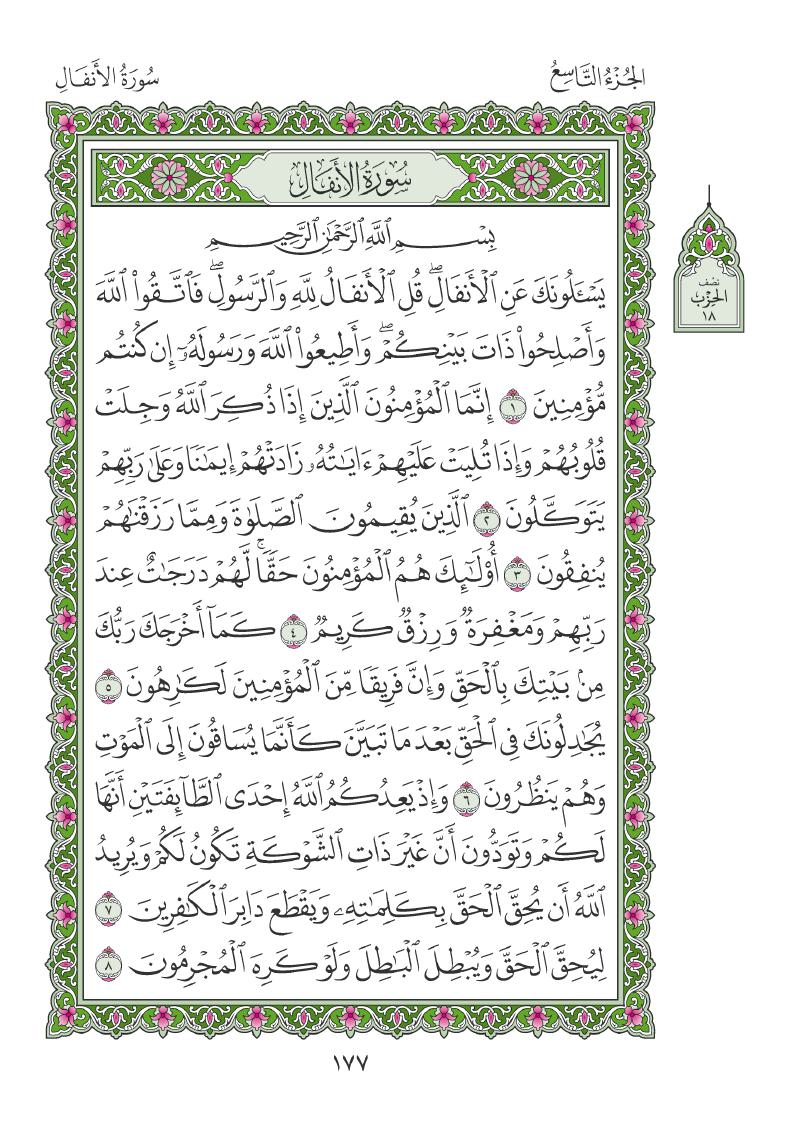 الجُزْءُ التَّاسِعُ
سُورَةُ الأَنفَالِ
سُورَةُ الأَنفَالِ
نصف
الحِزْب
١٨
بِسْمِ ٱللَّهِ ٱلرَّحْمَٰنِ ٱلرَّحِيمِ
يَسْـَٔلُونَكَ عَنِ ٱلْأَنفَالِۖ قُلِ ٱلْأَنفَالُ لِلَّهِ وَٱلرَّسُولِۖ فَٱتَّقُوا۟ ٱللَّهَ
وَأَصْلِحُوا۟ ذَاتَ بَيْنِكُمْۖ وَأَطِيعُوا۟ ٱللَّهَ وَرَسُولَهُۥٓ إِن كُنتُم
مُّؤْمِنِينَ ١ إِنَّمَا ٱلْمُؤْمِنُونَ ٱلَّذِينَ إِذَا ذُكِرَ ٱللَّهُ وَجِلَتْ
قُلُوبُهُمْ وَإِذَا تُلِيَتْ عَلَيْهِمْ ءَايَٰتُهُۥ زَادَتْهُمْ إِيمَٰنًا وَعَلَىٰ رَبِّهِمْ
يَتَوَكَّلُونَ ٢ ٱلَّذِينَ يُقِيمُونَ ٱلصَّلَوٰةَ وَمِمَّا رَزَقْنَٰهُمْ
يُنفِقُونَ ٣ أُو۟لَٰٓئِكَ هُمُ ٱلْمُؤْمِنُونَ حَقًّاۚ لَّهُمْ دَرَجَٰتٌ عِندَ
رَبِّهِمْ وَمَغْفِرَةٌ وَرِزْقٌ كَرِيمٌ ٤ كَمَآ أَخْرَجَكَ رَبُّكَ
مِنۢ بَيْتِكَ بِٱلْحَقِّ وَإِنَّ فَرِيقًا مِّنَ ٱلْمُؤْمِنِينَ لَكَٰرِهُونَ ٥
يُجَٰدِلُونَكَ فِى ٱلْحَقِّ بَعْدَ مَا تَبَيَّنَ كَأَنَّمَا يُسَاقُونَ إِلَى ٱلْمَوْتِ
وَهُمْ يَنظُرُونَ ٦ وَإِذْ يَعِدُكُمُ ٱللَّهُ إِحْدَى ٱلطَّآئِفَتَيْنِ أَنَّهَا
لَكُمْ وَتَوَدُّونَ أَنَّ غَيْرَ ذَاتِ ٱلشَّوْكَةِ تَكُونُ لَكُمْ وَيُرِيدُ
ٱللَّهُ أَن يُحِقَّ ٱلْحَقَّ بِكَلِمَٰتِهِۦ وَيَقْطَعَ دَابِرَ ٱلْكَٰفِرِينَ ٧
لِيُحِقَّ ٱلْحَقَّ وَيُبْطِلَ ٱلْبَٰطِلَ وَلَوْ كَرِهَ ٱلْمُجْرِمُونَ ٨
١٧٧